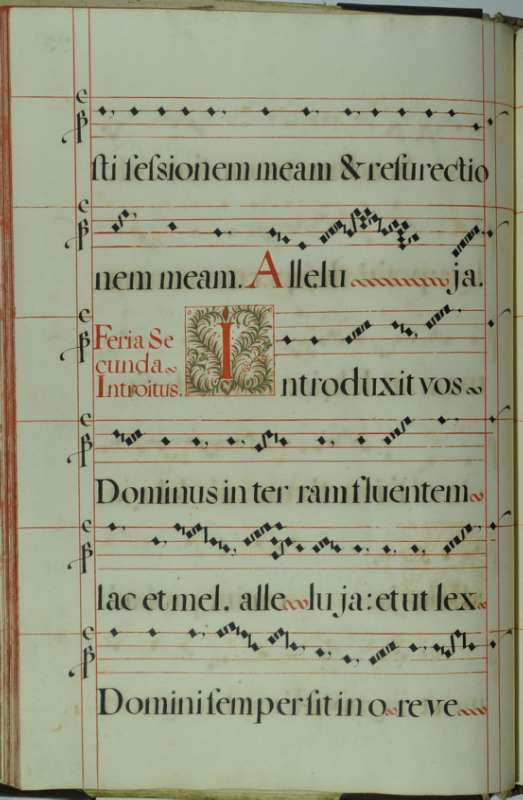 ſti ſeſsionem meam & reſurectio
nem meam. Allelu ja.
Feria Se
cunda
Introitus.
Introduxit vos
Dominus in ter ram fluentem
lac et mel. alle lu ja: et ut lex
Domini ſemper ſit in o re ve